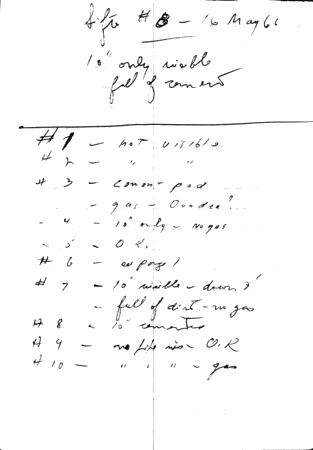 # 8 - 16 May 61
10" only visible
full of cement
#1 - not visible
#2 - " "
#3 - cement pad
- gas -
- 4 - 10" only - no gas
- 5 - O.K.
#6 -
#7 - 10" visible - down 3'
- full of dirt - no gas
#8 - 10" cemented
#9 - no - O.K
#10 - " " " - gas